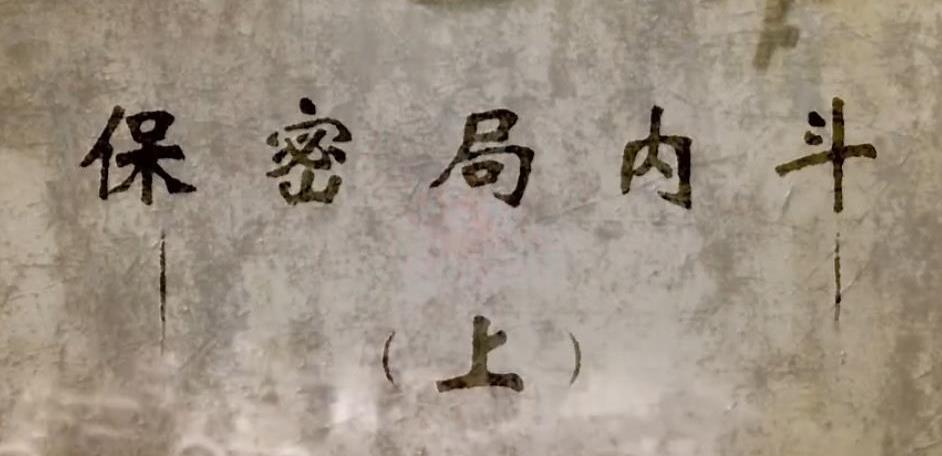 保密局内斗
（上）